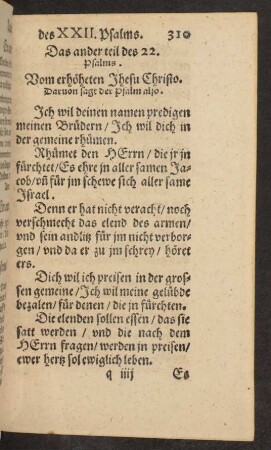 des XXII. Psalms. 310
Das ander teil des 22.
Psalms.
Vom erhöheten Jhesu Christo.
Daruon sagt der Psalm also.
Ich wil deinen namen predigen
meinen Brüdern / Ich wil dich in
der gemeine rhümen.
Rhümet den HErrn / die jr jn
fürchtet / Es ehre jn aller samen Ja-
cob / vñ für jm schewe sich aller same
Israel.
Denn er hat nicht veracht / noch
verschmecht das elend des armen /
vnd sein andlitz für jm nicht verbor-
gen / vnd da er zu jm schrey / höret
ers.
Dich wil ich preisen in der gros-
sen gemeine / Ich wil meine gelübde
bezalen / für denen / die jn fürchten.
Die elenden sollen essen / das sie
satt werden / vnd die nach dem
HErrn fragen / werden jn preisen /
ewer hertz sol ewiglich leben.
q iiij Es